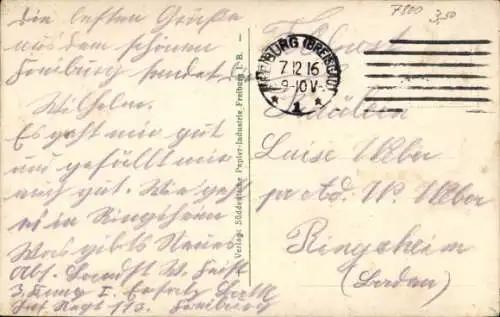 7800
3,50
die besten Grüße
aus dem schönen
Freiburg sendet
Wilhelm.
Es geht mir gut
und gefällt mir
auch gut. Wie geht
es in Ringsheim
Was gibts Neues
Abs. W.
3. I. Ersatz Batl.
Inf Regt 113. Freiburg
Verlag: Süddeutsche Papier-Industrie Freiburg i. B.
FREIBURG (BREISGAU)
7.12.16
9-10 V.
* 1 *
Fräulein
Luise Weber
pr Ad. W. Weber
Ringsheim
(Baden)